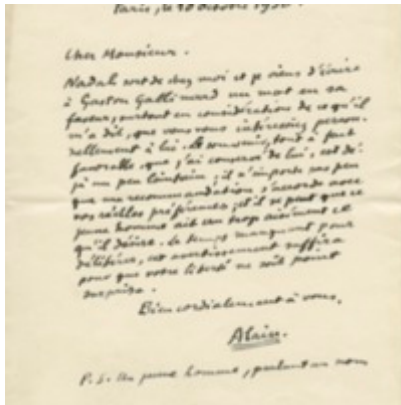 Paris, le 20 octobre 19
Cher Monsieur.
Nadal sort de chez moi et je viens d'écrire
à Gaston Gallimard un mot en sa
faveur, surtout en considération de ce qu'il
m'a dit, que vous vous intéressiez person-
nellement à lui. Le souvenir, tout à fait
favorable, que j'ai conservé de lui, est dé-
jà un peu lointain; il n'importe pas peu
que ma recommandation s'accorde avec
vos réelles préférences; et il se peut que ce
jeune homme ait cru trop aisément ce
qu'il désire. Le temps manquant pour
délibérer, cet avertissement suffira
pour que votre liberté ne soit point
surprise.
Bien cordialement à vous.
Alain.
P.S. Un jeune homme, parlant au nom